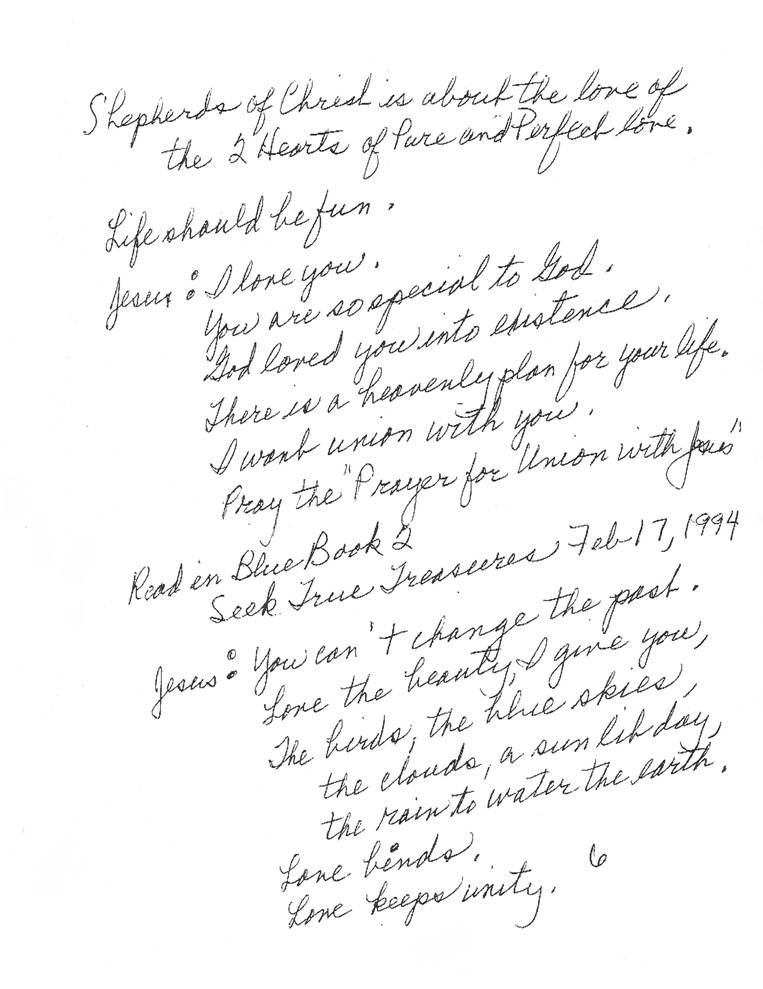 Shepherds of Christ is about the love of
the 2 Hearts of Pure and Perfect love.
Life should be fun.
Jesus: I love you.
You are so special to God.
God loved you into existence.
There is a heavenly plan for your life.
I want union with you.
Pray the "Prayer for Union with Jesus"
Read in Blue Book 2
Seek True Treasures Feb 17, 1994
Jesus: You can't change the past.
Love the beauty, I give you,
The birds, the blue skies,
the clouds, a sun lit day,
the rain to water the earth.
Love binds.
Love keeps unity. 6